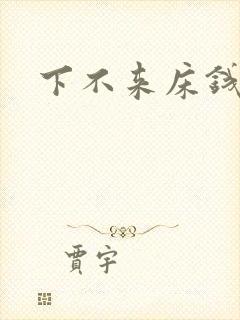 下不来床钱
賈宇